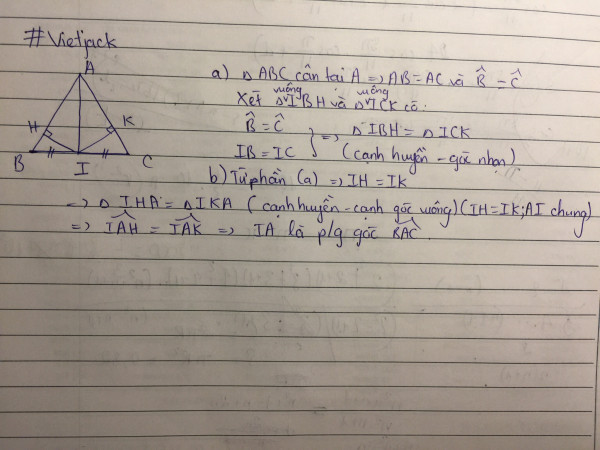 #Vietjack
A
H
K
B
I
C
a) Δ ABC cân tại A => AB = AC và B̂ = Ĉ
Xét Δ vuông IBH và Δ vuông ICK có:
B̂ = Ĉ
IB = IC } => Δ IBH = Δ ICK
(cạnh huyền - góc nhọn)
b) Từ phần (a) => IH = IK
=> Δ IHA = Δ IKA (cạnh huyền - cạnh góc vuông) (IH = IK; AI chung)
=> IAH = IAK => IA là p/g góc BAC.